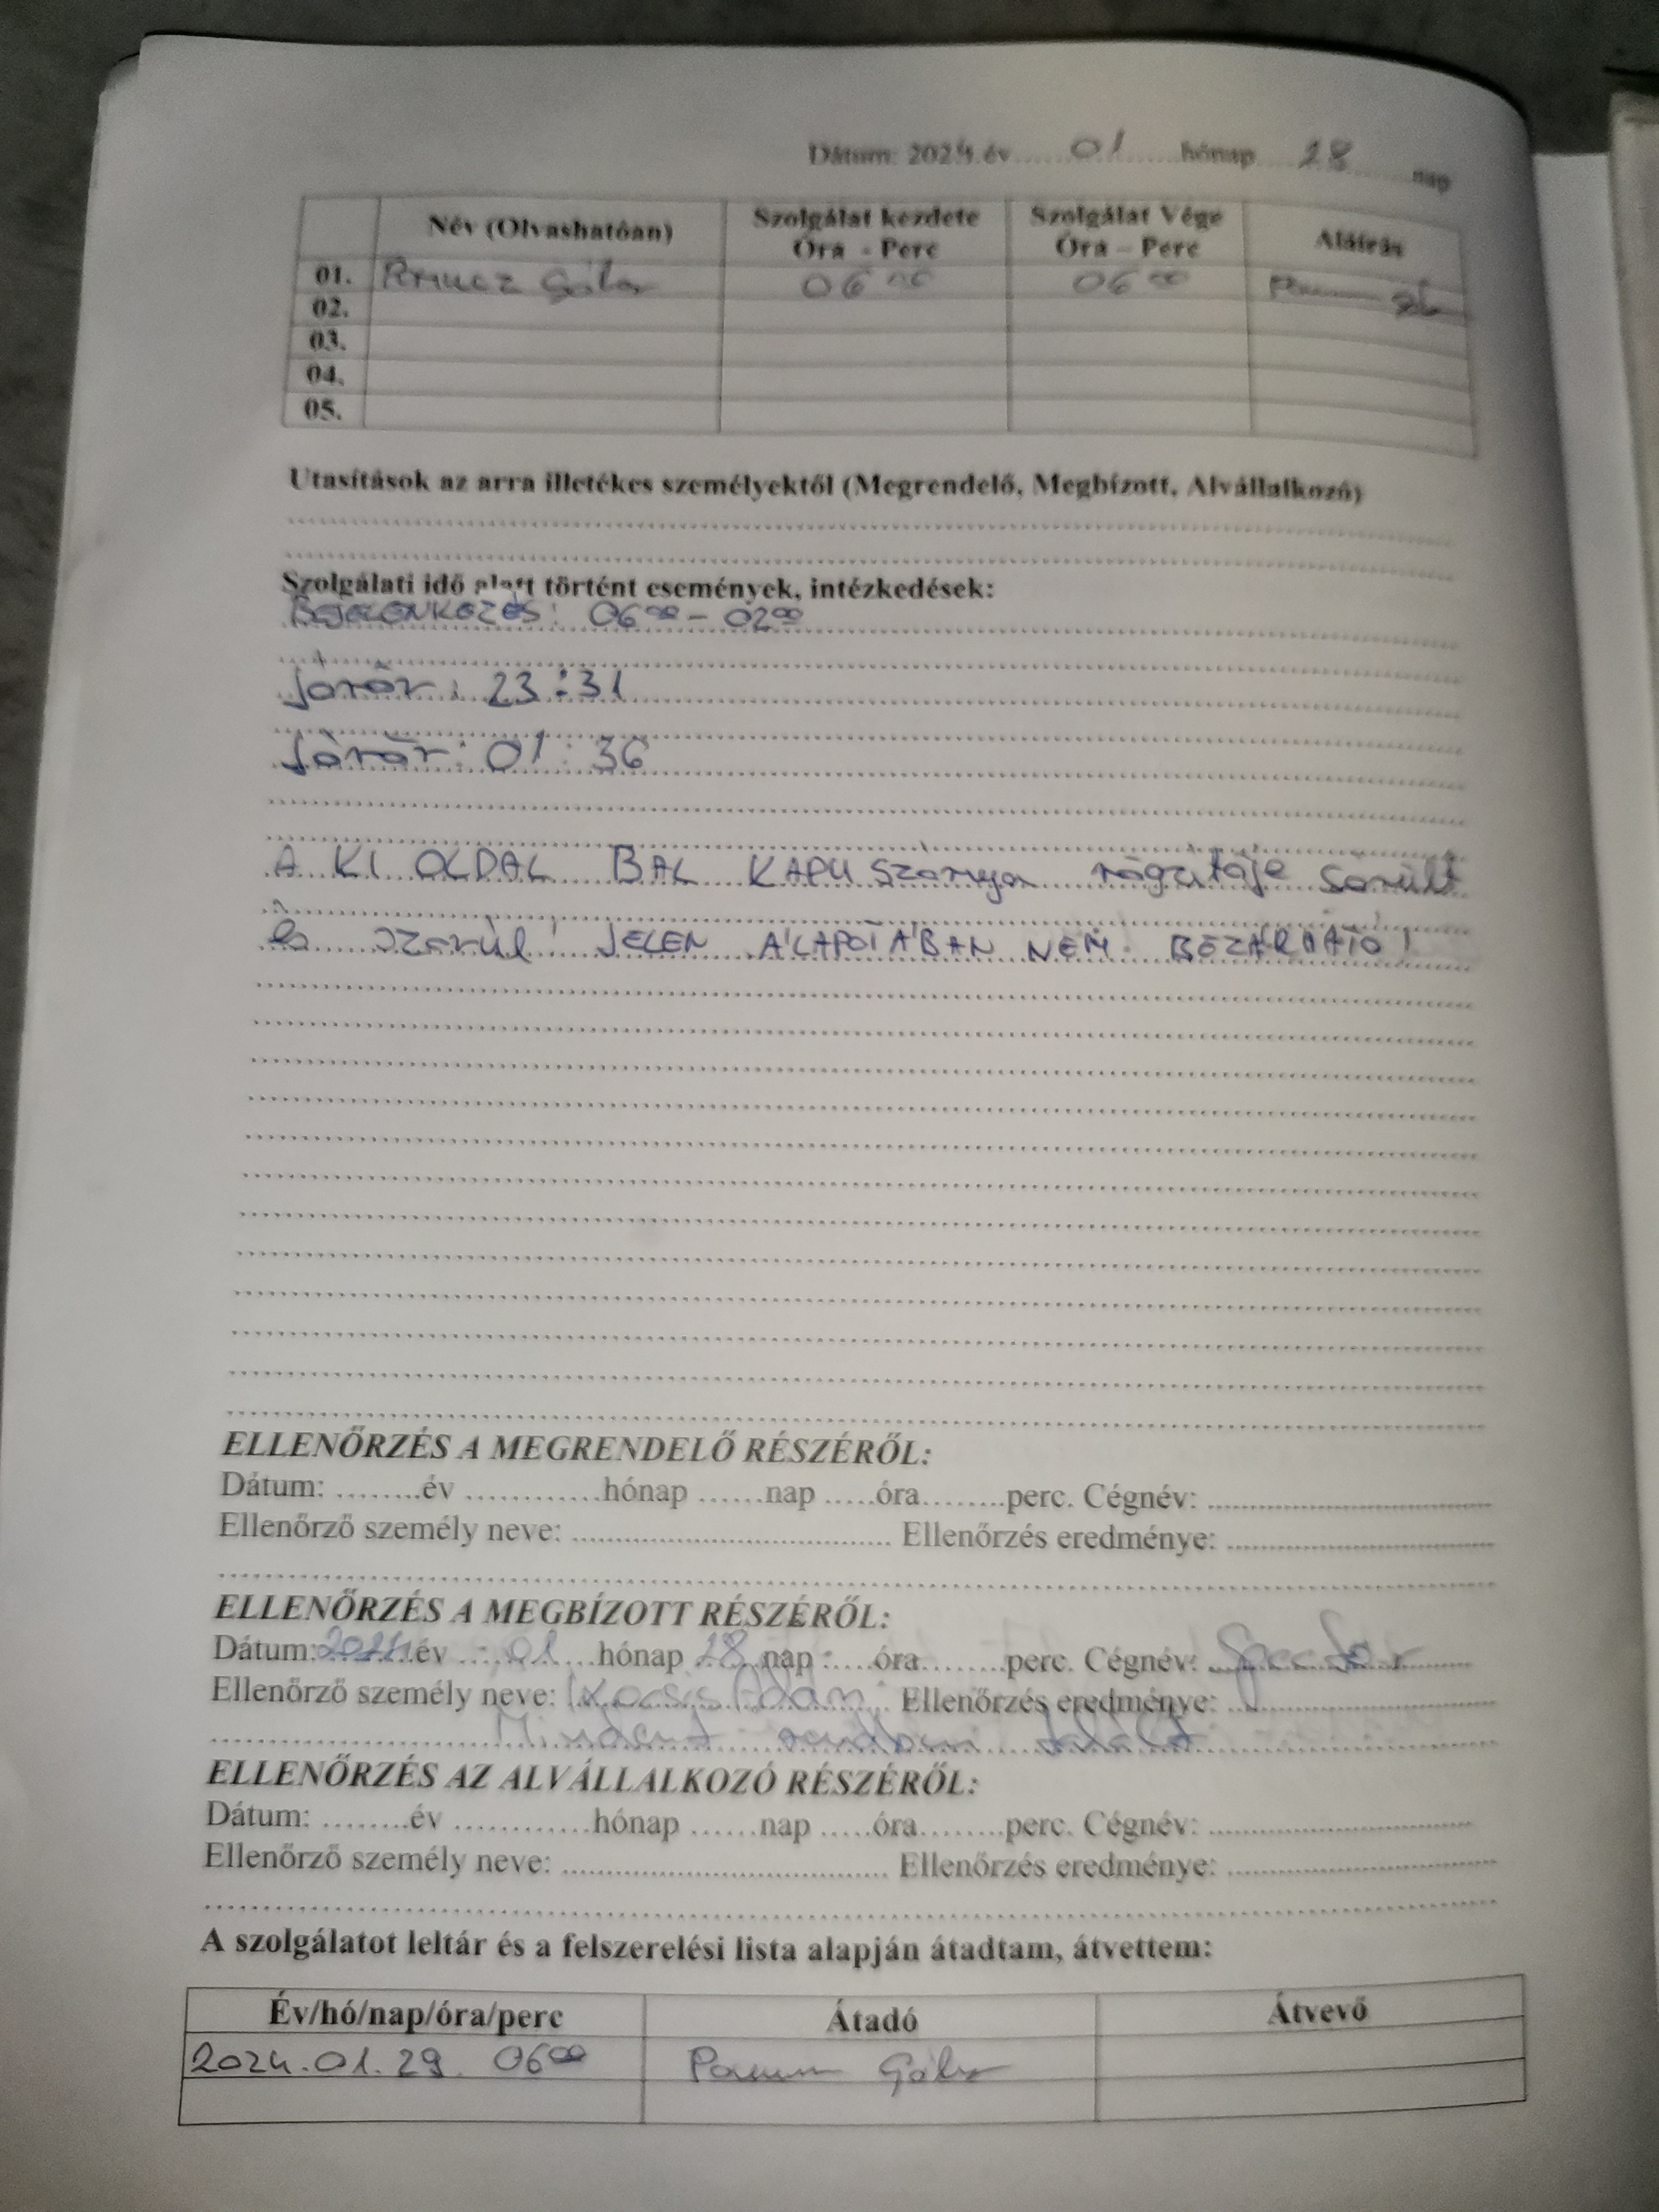 Dátum: 2024 év 01 hónap 28 nap
Név (Olvashatóan) Szolgálat kezdete Óra - Perc Szolgálat Vége Óra – Perc Aláírás
01. Gábor 06 00 06 00
02.
03.
04.
05.
Utasítások az arra illetékes személyektől (Megrendelő, Megbízott, Alvállalkozó)
Szolgálati idő alatt történt események, intézkedések:
BEJELENKEZÉS: 06 00 – 02 00
Járőr: 23:31
Járőr: 01:36
A KI OLDAL BAL KAPU szárnya rögzitője sérült
és JELEN ÁLAPOTÁBAN NEM BEZÁRHATÓ!
ELLENŐRZÉS A MEGRENDELŐ RÉSZÉRŐL:
Dátum: ........év ............hónap ......nap .....óra........perc. Cégnév: ........
Ellenőrző személy neve: ........ Ellenőrzés eredménye: ........
ELLENŐRZÉS A MEGBÍZOTT RÉSZÉRŐL:
Dátum: 2024 év 01 hónap 28 nap .....óra........perc. Cégnév:
Ellenőrző személy neve: Kocsis Ádám Ellenőrzés eredménye:
Mindent rendben talált
ELLENŐRZÉS AZ ALVÁLLALKOZÓ RÉSZÉRŐL:
Dátum: ........év ............hónap ......nap .....óra........perc. Cégnév: ........
Ellenőrző személy neve: ........ Ellenőrzés eredménye: ........
A szolgálatot leltár és a felszerelési lista alapján átadtam, átvettem:
Év/hó/nap/óra/perc Átadó Átvevő
2024.01.29. 06 00 Gábor